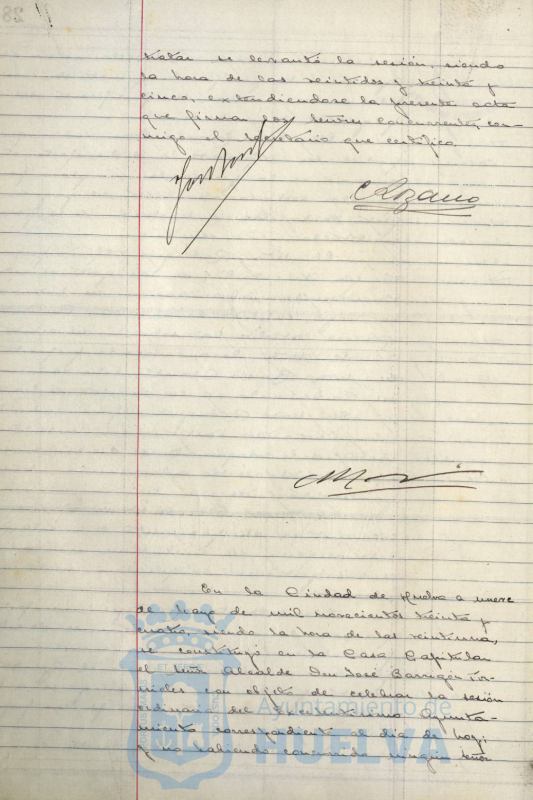 28
tratar se levantó la sesión, siendo
la hora de las veintidos y treinta y
cinco, extendiendose la presente acta
que firman los señores concurrentes, con-
migo el Secretario que certifico.
C Lozano
En la Ciudad de Huelva a nueve
de Mayo de mil novecientos treinta y
cuatro, siendo la hora de las veintiuna,
se constituyó en la Casa Capitular
el Señor Alcalde Don José Barrigón For-
nieles con objeto de celebrar la sesión
ordinaria del Excelentísimo Ayunta-
miento correspondiente al día de hoy;
y no habiendo concurrido ningun señor
Ayuntamiento de
HUELVA